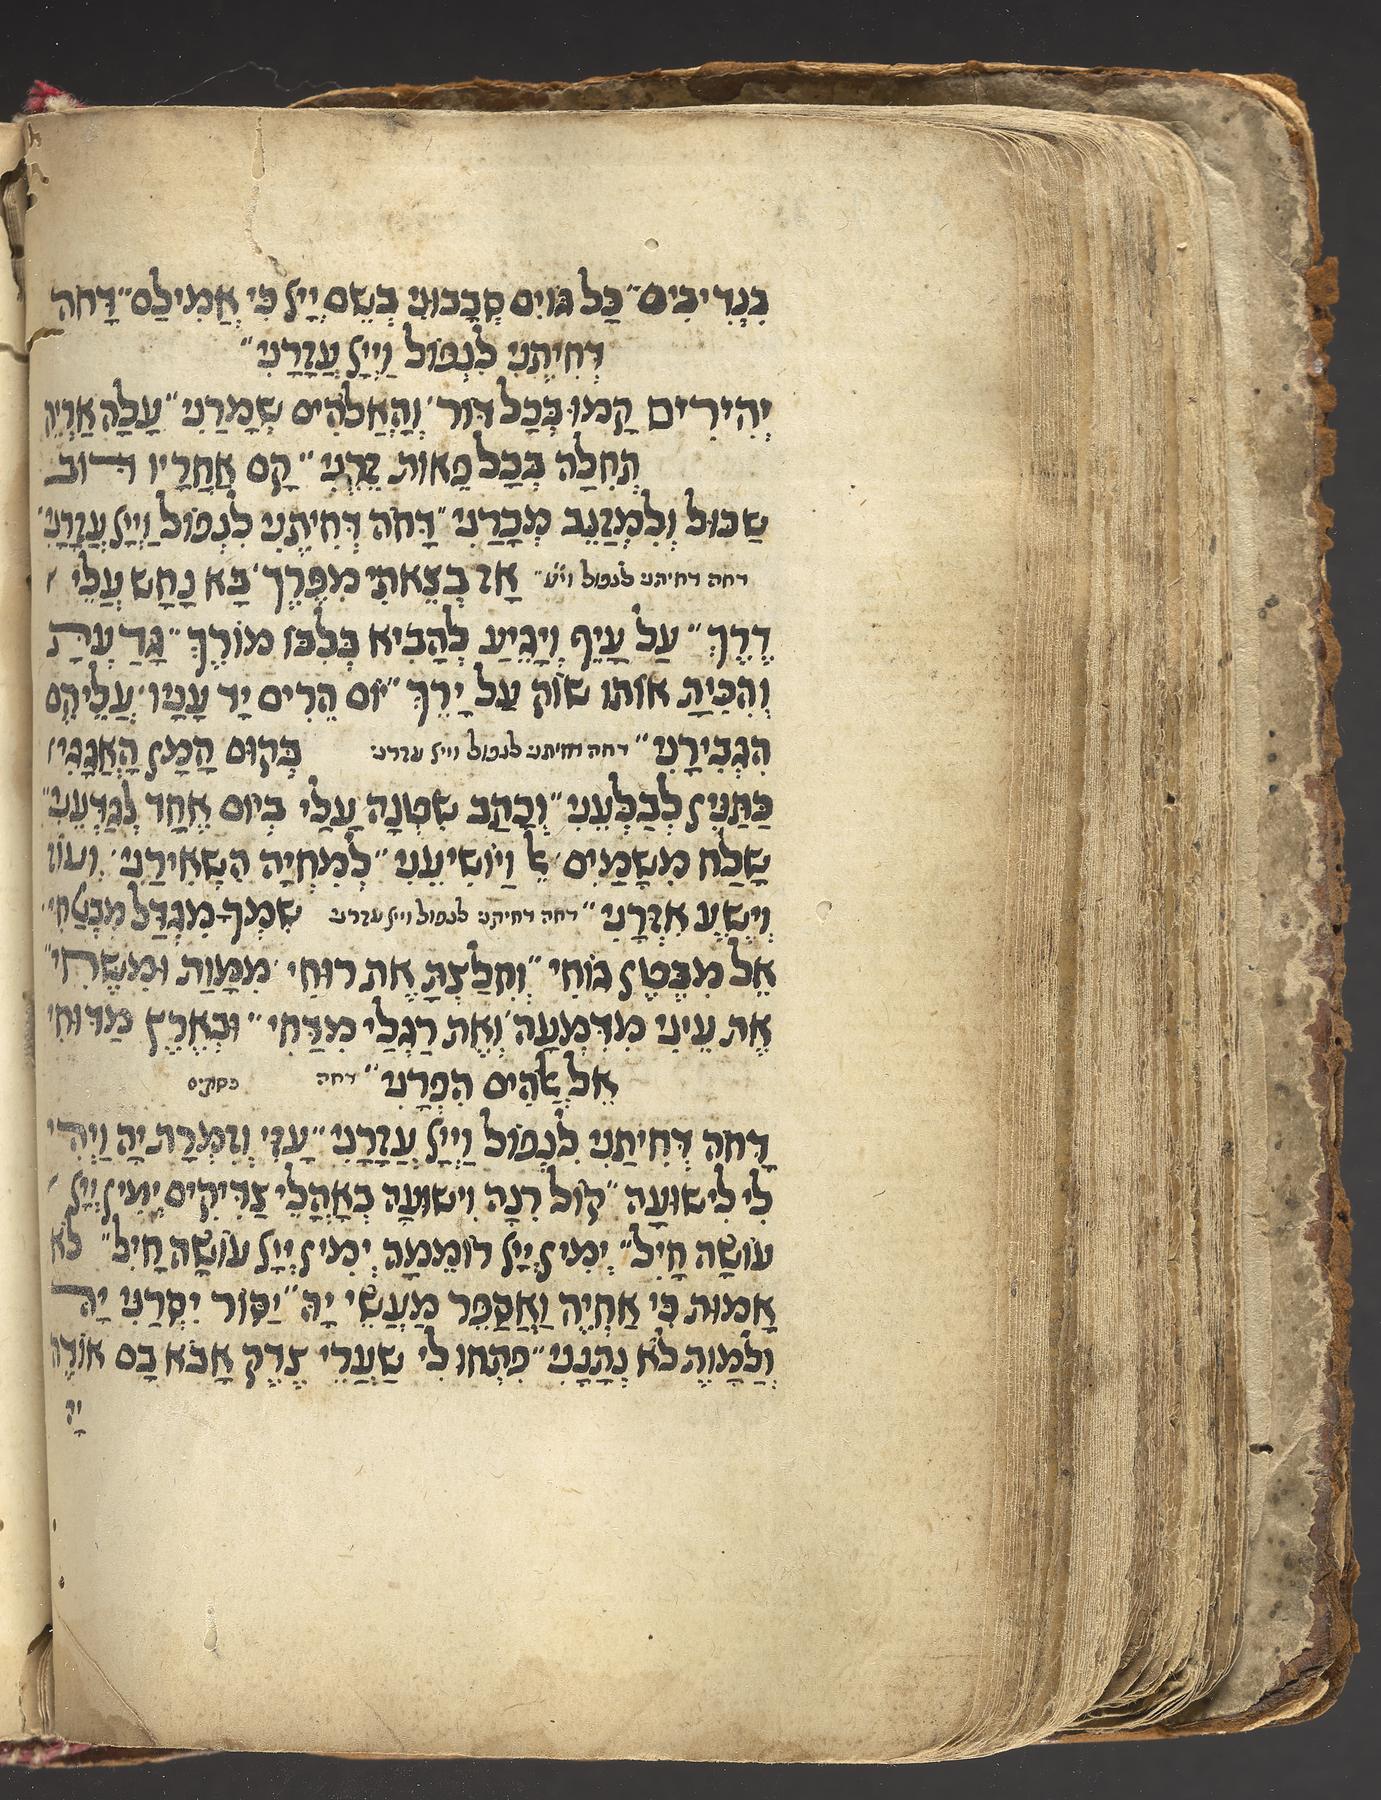 בִּנְדִיבִים״ כָּל גּוֹיִם סְבָבוּנִי בְּשֵׁם יְיָ֗ כִּי אֲמִילַם״ דָּחֹה
דְּחִיתַנִי לִנְפּוֹל וַיְיָ֗ עֲזָרָנִי״
יְהִירִים קָמוּ בְּכָל דּוֹר׳ וְהָאֱלֹהִים שְׁמָרַנִי״ עָלָה אַרְיֵה
תְּחִלָּה בְּכָל פֵּאוֹת זֵרְנִי״ קָם אַחֲרָיו דוב
שַׁכּוּל וְלִמְזַנֵּב מְכָרַנִי״ דָּחֹה דְּחִיתַנִי לִנְפּוֹל וַיְיָ֗ עֲזָרָנִי׳
דחה דחיתני לנפול וי״ע״ אָז בְּצֵאתִי מִפֶּרֶךְ׳ בָּא נָחָשׁ עֲלֵי
דֶרֶךְ״ עַל עָיֵף וְיָגֵיעַ לְהָבִיא בְּלִבּוֹ מוֹרֶךְ״ גָּדַעְתָּ
וְהִכִּיתָ אוֹתוֹ שׁוֹק עַל יָרֵךְ״ יוֹם הֵרִים יָד עָנָיו׳ עֲלֵיהֶם
הִגְבִּירָנִי״ דחה דחיתני לנפול וייָ עזרני בְּקוּם הָמָן הָאֲגָגִי׳
כַּתַּנִּין לְבַלְּעֵנִי״ וְכָתַב שִׂטְנָה עָלַי בְּיוֹם אֶחָד לְגַדְּעֵנִי״
שָׁלַח מִשָּׁמַיִם אֵל וַיּוֹשִׁיעֵנִי״ לְמִחְיָה הִשְׁאִירַנִי׳ וְעוֹז
וְיֶשַׁע אִזְּרָנִי״ דחה דחיתני לנפול וייָ עזרני שִׁמְךָ מִגְדַּל מִבְטָחִי׳
אֵל מִבֶּטֶן גּוֹחִי״ וְחִלַּצְתָּ אֶת רוּחִי׳ מִמָּוֶת וּמִשֶּׁחִי״
אֶת עֵינִי מִדִּמְעָה׳ וְאֶת רַגְלַי מִדֶּחִי״ וּבְאֶרֶץ מַדּוּחִי
אֵל אֱלֹהִים הִפְרָנִי״ דחה כסוקים
דָּחֹה דְּחִיתַנִי לִנְפּוֹל וַיְיָ֗ עֲזָרָנִי״ עָזִּי וְזִמְרָת יָהּ וַיְהִי
לִי לִישׁוּעָה״ קוֹל רִנָּה וִישׁוּעָה בְּאָהֳלֵי צַדִּיקִים יְמִין יְיָ֗
עוֹשָׂה חָיִל״ יְמִין יְיָ֗ רוֹמֵמָה יְמִין יְיָ֗ עוֹשָׂה חָיִל״ לֹא
אָמוּת כִּי אֶחְיֶה וַאֲסַפֵּר מַעֲשֵׂי יָהּ״ יַסּוֹר יִסְּרַנִּי יָהּ
וְלַמָּוֶת לֹא נְתָנָנִי״ פִּתְחוּ לִי שַׁעֲרֵי צֶדֶק אָבֹא בָם אוֹדֶה
יָהּ